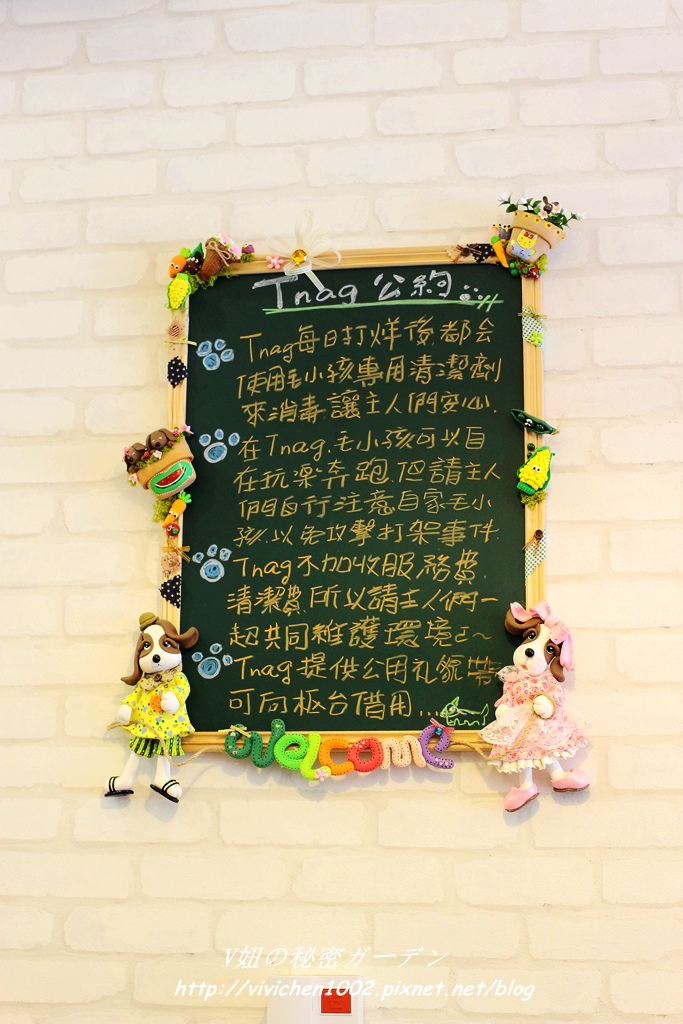 Tnag公約
Tnag每日打烊後都会
使用毛小孩專用清潔劑
來消毒讓主人們安心.
在Tnag.毛小孩可以自
在玩楽奔跑.但請主人
們自行注意自家毛小
孩.以免攻擊打架事件.
Tnag不加收服務費.
清潔費.所以請主人們一
起共同維護環境ㄛ~
Tnag提供公用礼貌帶
可向柜台借用...
welcome
V妞の秘密ガーデン
http://vivichen1002.pixnet.net/blog